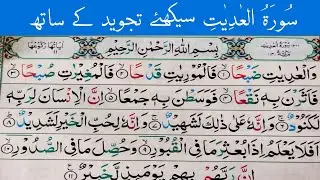 سُورَةُ الْعٰدِيٰتِ سیکھئے تجوید کے ساتھ
بِسْمِ اللّٰهِ الرَّحْمٰنِ الرَّحِيْمِ
وَالْعٰدِيٰتِ ضَبْحًا ۙ۱ فَالْمُوْرِيٰتِ قَدْحًا ۙ۲ فَالْمُغِيْرٰتِ صُبْحًا ۙ۳
فَاَثَرْنَ بِهٖ نَقْعًا ۙ۴ فَوَسَطْنَ بِهٖ جَمْعًا ۙ۵ اِنَّ الْاِنْسَانَ لِرَبِّهٖ
لَكَنُوْدٌ ۚ۶ وَاِنَّهٗ عَلٰى ذٰلِكَ لَشَهِيْدٌ ۚ۷ وَاِنَّهٗ لِحُبِّ الْخَيْرِ لَشَدِيْدٌ ؕ۸
اَفَلَا يَعْلَمُ اِذَا بُعْثِرَ مَا فِى الْقُبُوْرِ ۙ۹ وَحُصِّلَ مَا فِى الصُّدُوْرِ ۙ۱۰
اِنَّ رَبَّهُمْ بِهِمْ يَوْمَئِذٍ لَّخَبِيْرٌ ۱۱